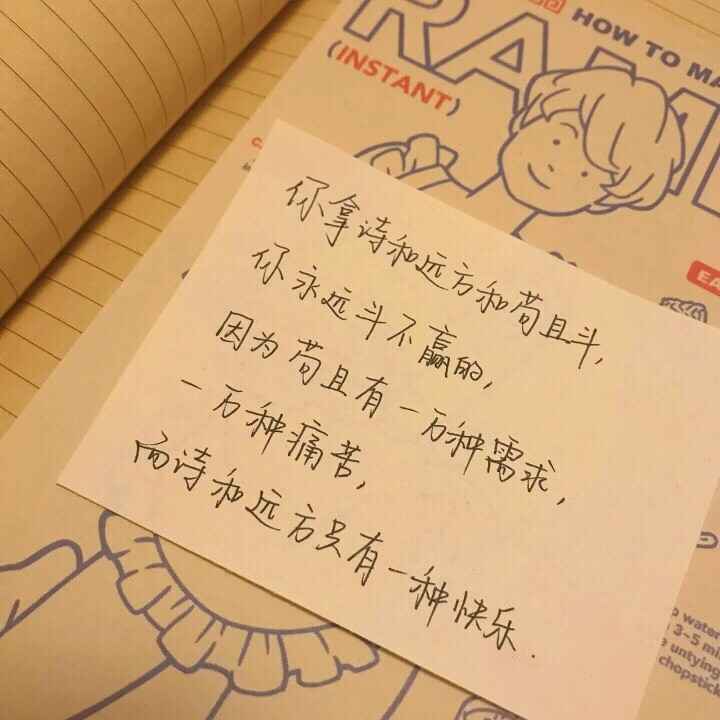 HOW TO MA
RAME
(INSTANT)
EA
你拿诗和远方和苟且斗,
你永远斗不赢的,
因为苟且有一万种需求,
一万种痛苦,
而诗和远方只有一种快乐.
water
3~5 mi
untying
chopstick